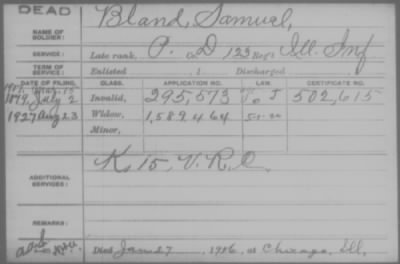 DEAD
NAME OF SOLDIER: Bland, Samuel,
SERVICE: Late rank, P. Co. D 123 Reg't Ill. Inf
TERM OF SERVICE: Enlisted 1 Discharged
DATE OF FILING. CLASS. APPLICATION NO. LAW. CERTIFICATE NO.
1879, July 2 Invalid, 295,573 502,615
1927 Aug 23 Widow, 1,589464 5-1-20
Minor,
ADDITIONAL SERVICES: K 15, V.R.C.
REMARKS:
Died Jan 27, 1916, at Chicago, Ill,